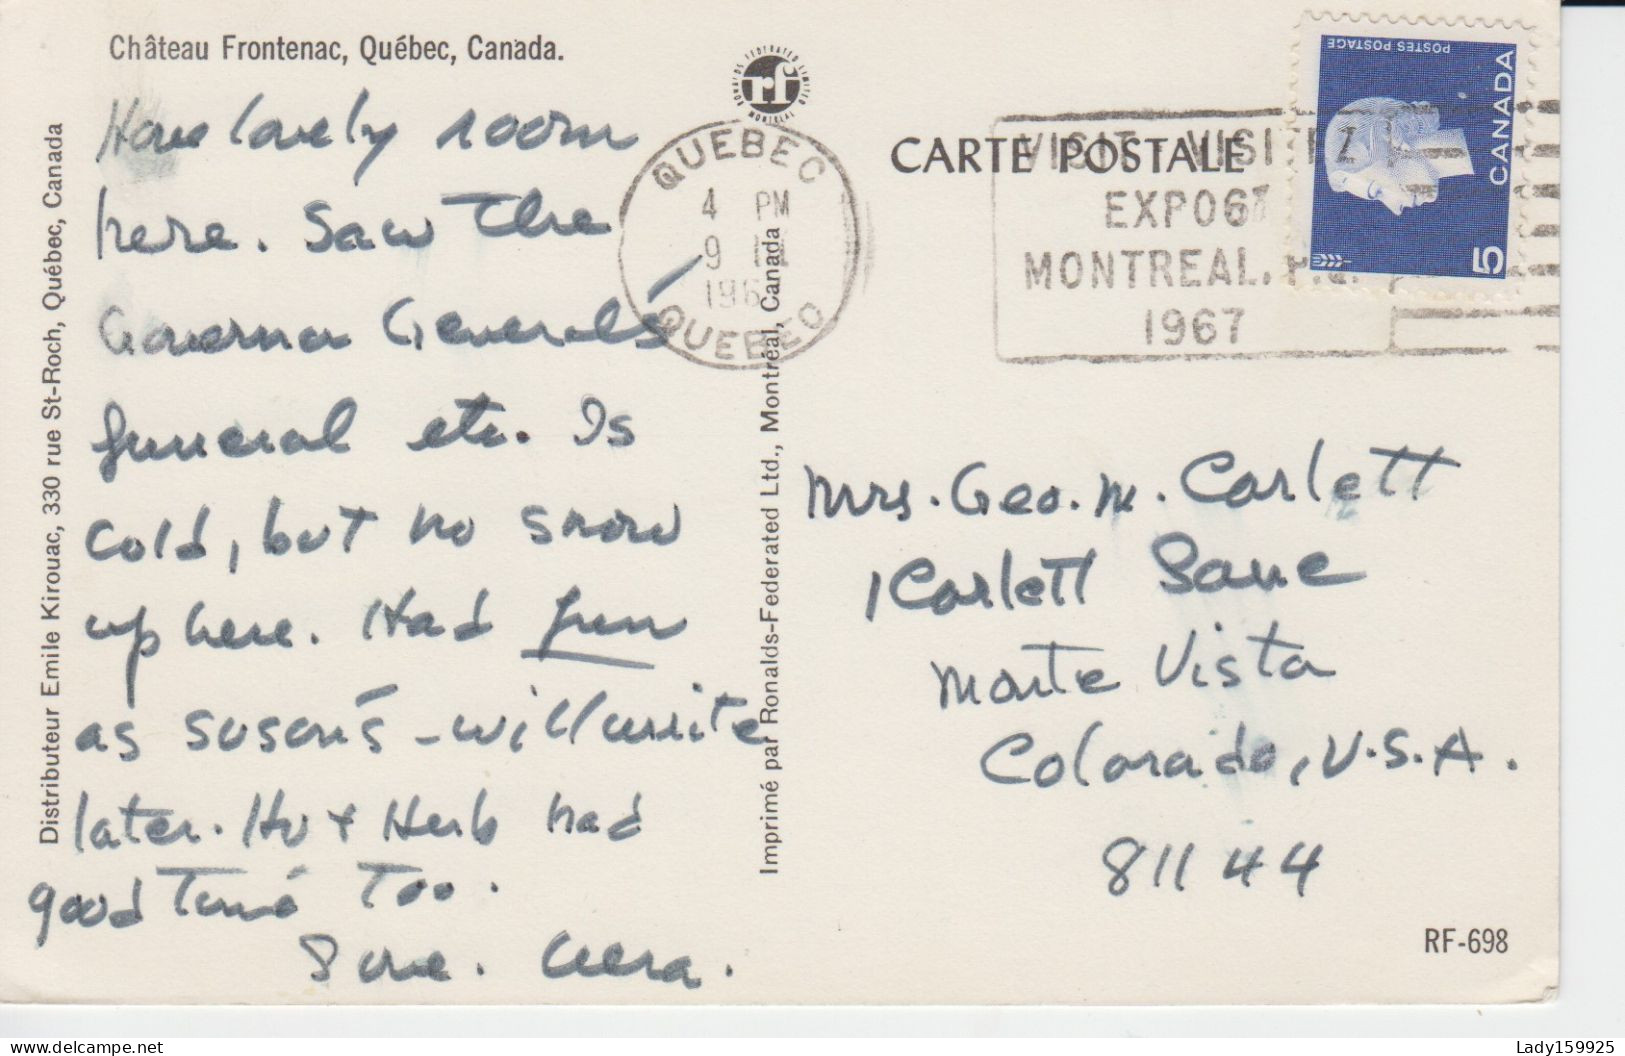 Château Frontenac, Québec, Canada.
Have lovely room
here. Saw The
Governor Generals'
funeral etc. Is
cold, but no snow
up here. Had fun
as Suson's - will write
later. Hv + Herb had
good Time Too.
Love. Vera.
Distributeur Emile Kirouac, 330 rue St-Roch, Québec, Canada
Imprimé par Ronalds-Federated Ltd., Montréal, Canada
RONALDS FEDERATED LIMITED
rf
MONTREAL
QUEBEC
4 PM
9 III
196
QUEBEC
CARTE POSTALE
VISIT VISITEZ
EXPO67
MONTREAL, P.Q.
1967
POSTES POSTAGE
CANADA
5
Mrs. Geo. M. Corlett
1 Corlett Lane
Monte Vista
Colorado, U.S.A.
81144
RF-698
Lady159925